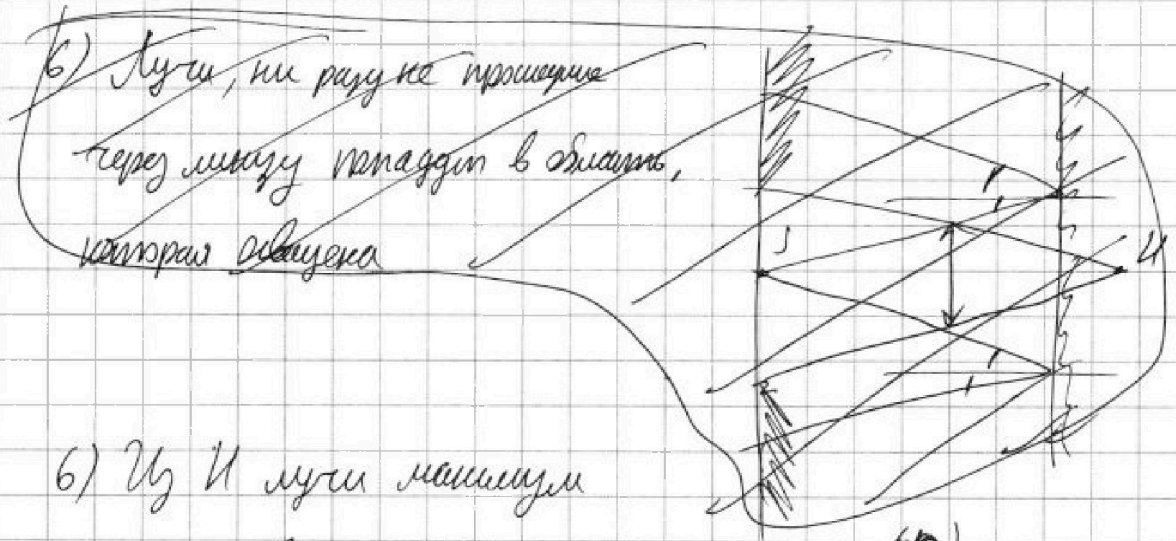 6) Лучи, ни разу не прошедшие
через линзу попадут в область,
которая освещена
S
И
6) Из И лучи максимум